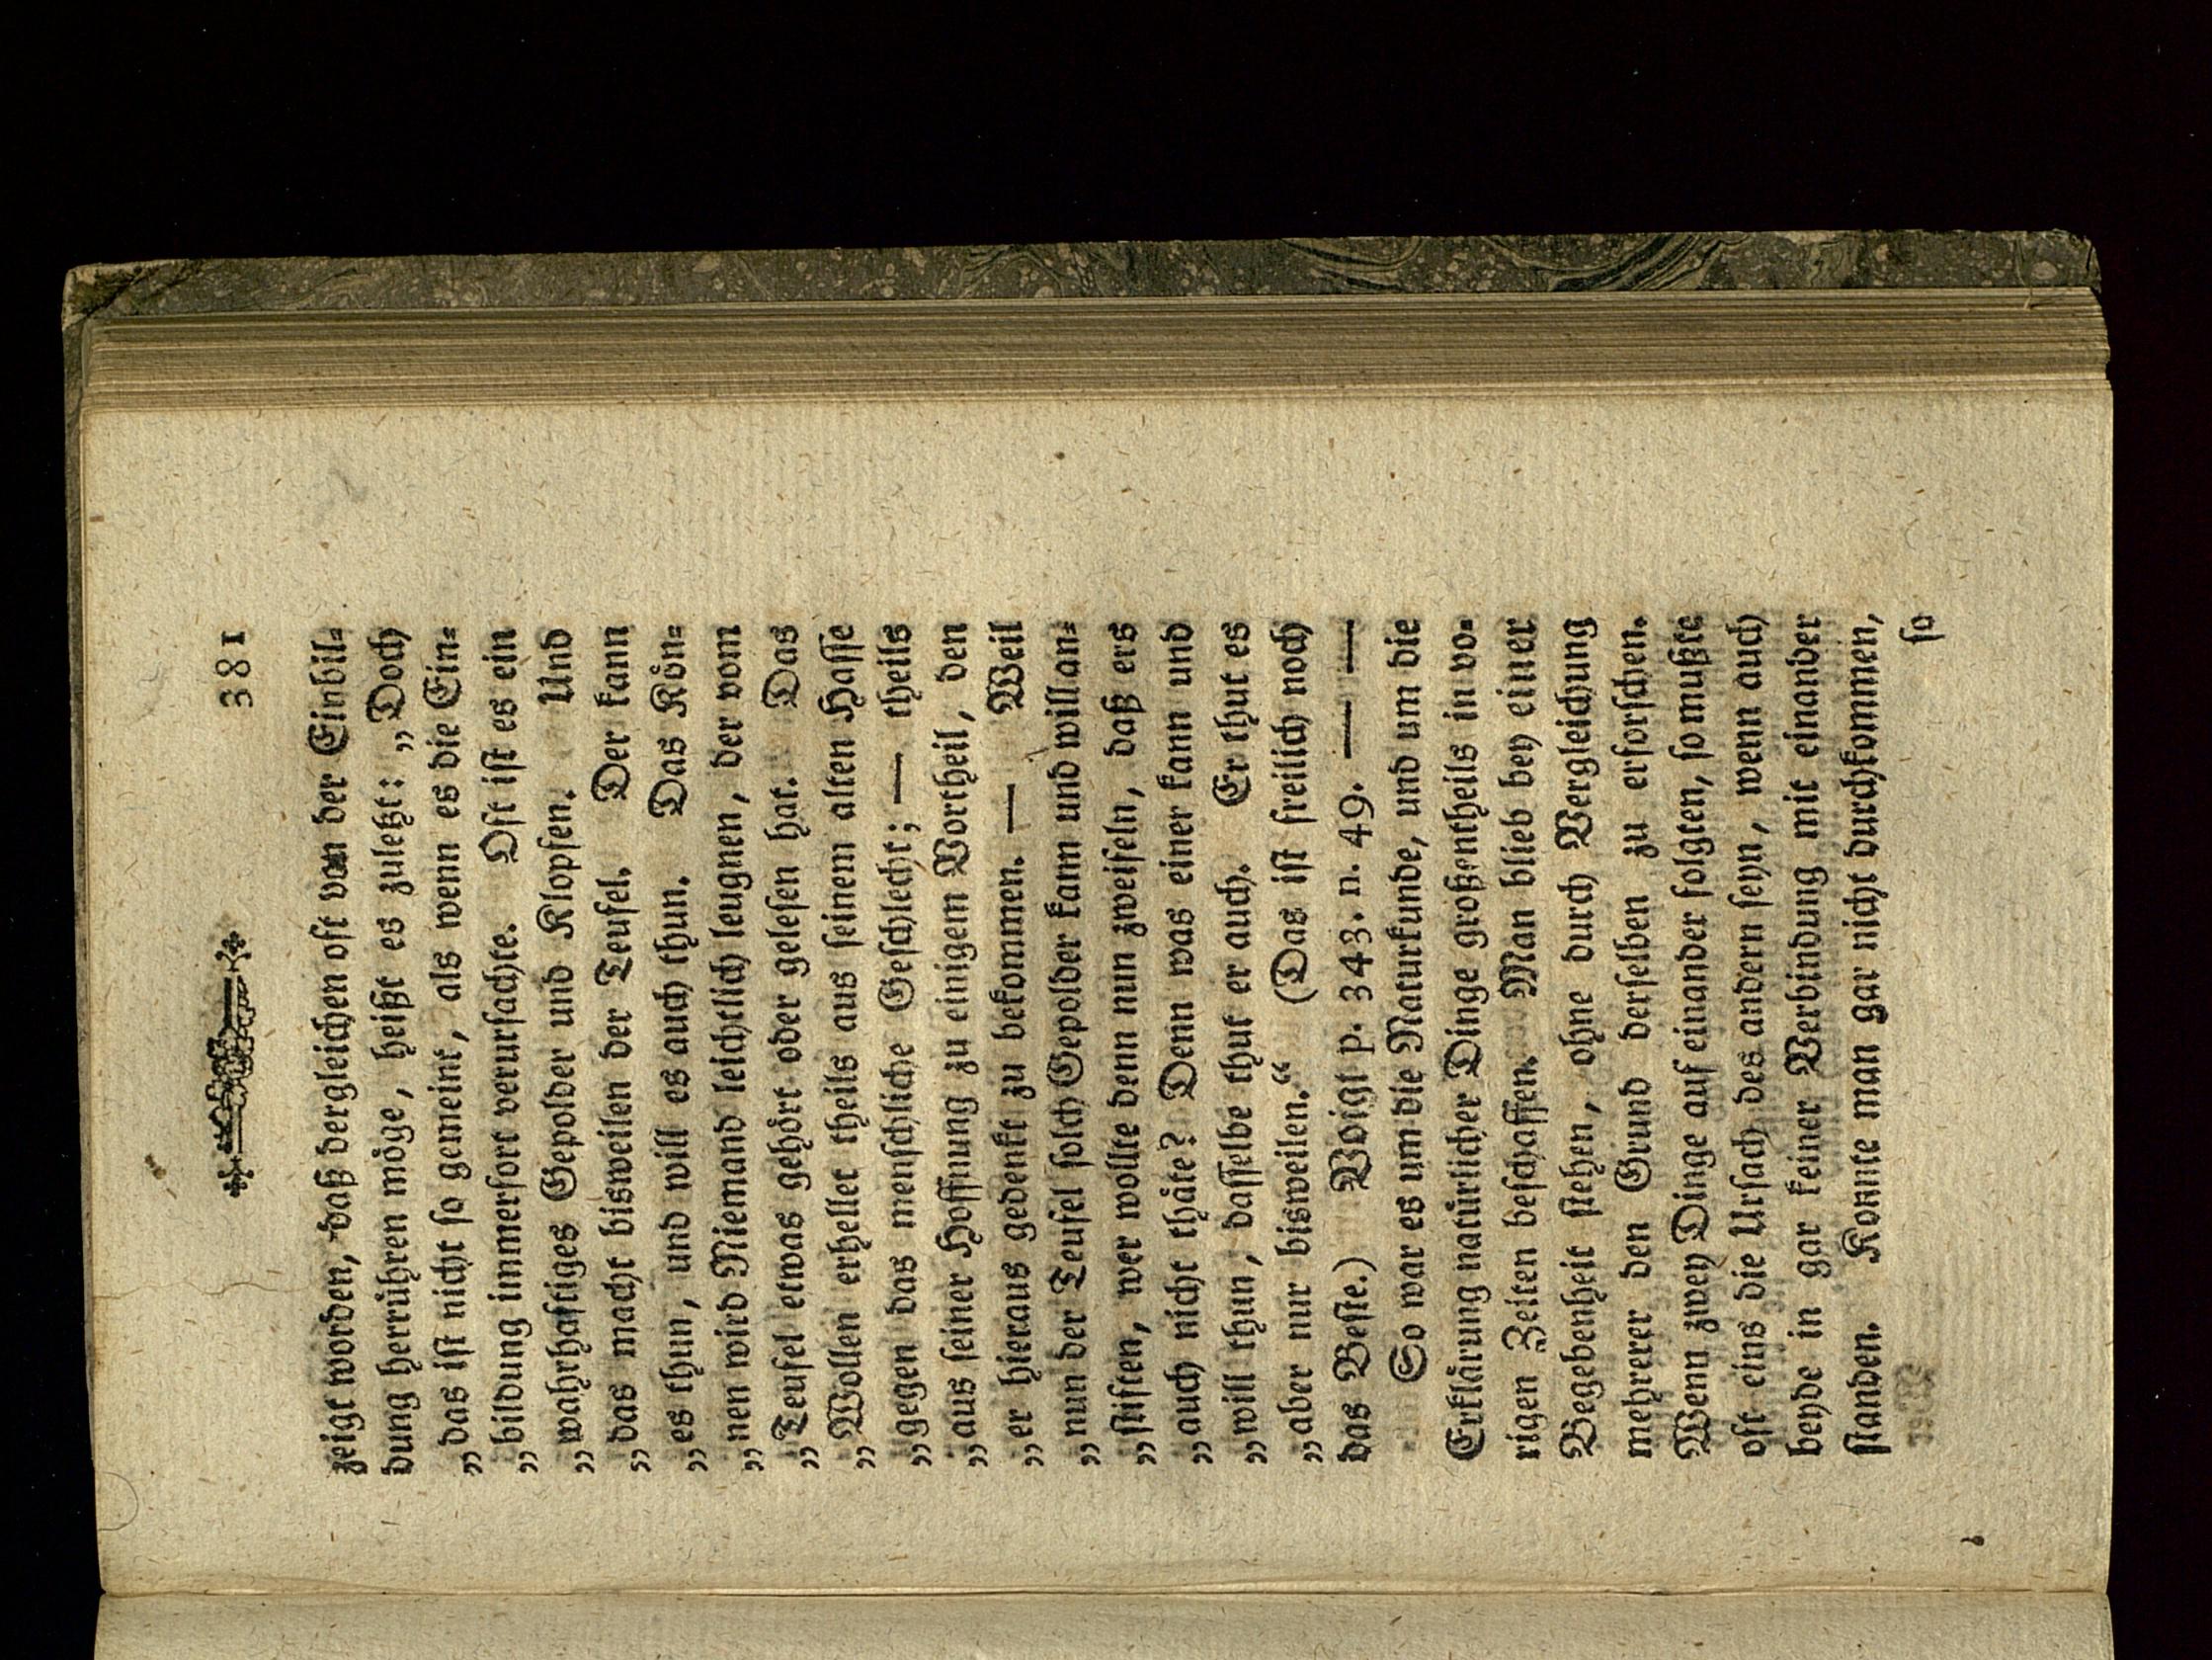 381
zeigt worden, daß dergleichen oft von der Einbil-
dung herrühren möge, heißt es zuletzt: „Doch
„das ist nicht so gemeint, als wenn es die Ein-
„bildung immerfort verursachte. Oft ist es ein
„wahrhaftiges Gepolder und Klopfen. Und
„das macht bisweilen der Teufel. Der kann
„es thun, und will es auch thun. Das Kön-
„nen wird Niemand leichtlich leugnen, der vom
„Teufel etwas gehört oder gelesen hat. Das
„Wollen erhellet theils aus seinem alten Hasse
„gegen das menschliche Geschlecht; — theils
„aus seiner Hoffnung zu einigem Vortheil, den
„er hieraus gedenkt zu bekommen. — Weil
„nun der Teufel solch Gepolder kann und will an-
„stiften, wer wollte denn nun zweifeln, daß ers
„auch nicht thäte? Denn was einer kann und
„will thun, dasselbe thut er auch. Er thut es
„aber nur bisweilen.“ (Das ist freilich noch
das Beste.) Voigt p. 343. n. 49. — —
So war es um die Naturkunde, und um die
Erklärung natürlicher Dinge großentheils in vo-
rigen Zeiten beschaffen. Man blieb bey einer
Begebenheit stehen, ohne durch Vergleichung
mehrerer den Grund derselben zu erforschen.
Wenn zwey Dinge auf einander folgten, so mußte
oft eins die Ursach des andern seyn, wenn auch
beyde in gar keiner Verbindung mit einander
standen. Konnte man gar nicht durchkommen,
so